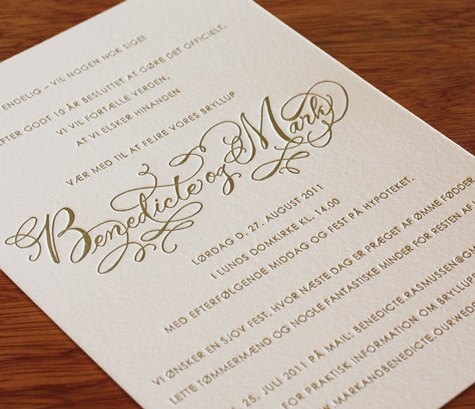 ENDELIG – VIL NOGEN NOK SIGE!
EFTER GODT 10 ÅR BESLUTTET AT GØRE DET OFFICIELT.
VI VIL FORTÆLLE VERDEN,
AT VI ELSKER HINANDEN
VÆR MED TIL AT FEJRE VORES BRYLLUP
Benedicte og Mark
LØRDAG D. 27. AUGUST 2011
I LUNDS DOMKIRKE KL. 14.00
MED EFTERFØLGENDE MIDDAG OG FEST PÅ HYPOTEKET.
VI ØNSKER EN SJOV FEST, HVOR NÆSTE DAG ER PRÆGET AF ØMME FØDDER,
LETTE TØMMERMÆND OG NOGLE FANTASTISKE MINDER FOR RESTEN AF
25. JULI 2011 PÅ MAIL: BENEDICTE.RASMUSSEN@G
FOR PRAKTISK INFORMATION OM BRYLLUP
WWW.MARKANDBENEDICTE.OURWED